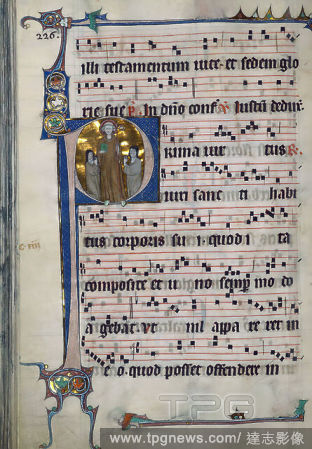 226.
illi testamentum vite: et sedem glo
rie sue p. In dño conf. Iustū deduc.
Rima vir tus
viri sanc ti habi
tus corporis su i. quod i ta
composite et u no semp mo do
a gebat. ut nil appa re ret in
e o. quod posset offendere in
TPG
www.tpgnews.com / 達志影像